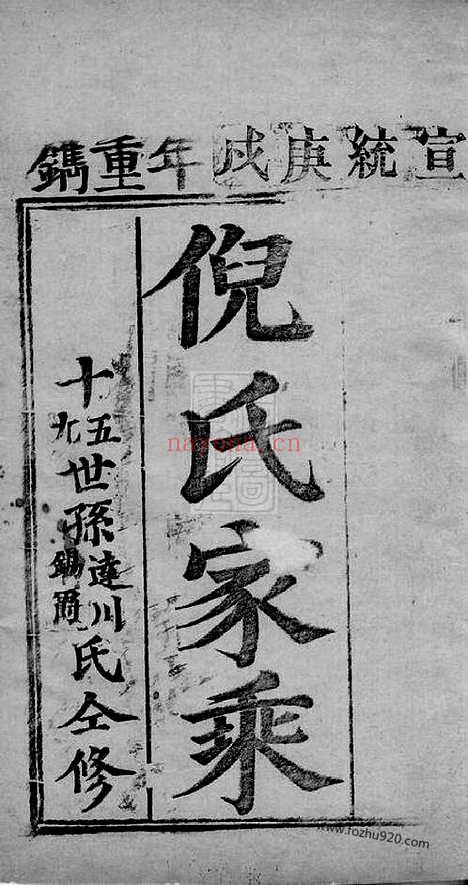 宣統庚戌年重鐫
倪氏家乘
十五九世孫達川錫爵氏仝修
nayona.cn
www.fozhu920.com